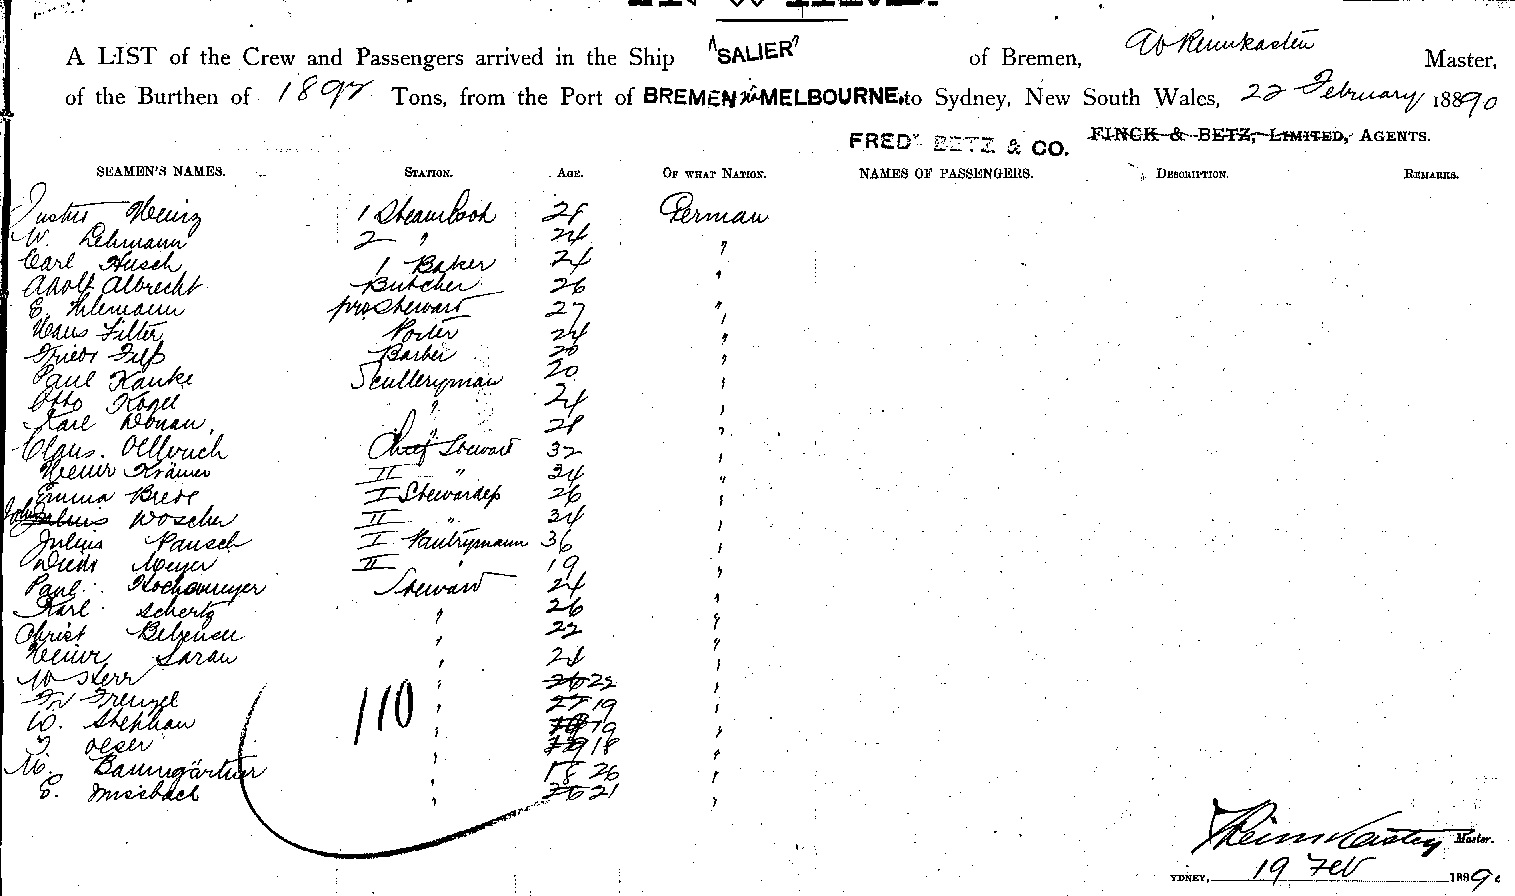 A LIST of the Crew and Passengers arrived in the Ship "SALIER" of Bremen, Master,
of the Burthen of 1897 Tons, from the Port of BREMEN via MELBOURNE, to Sydney, New South Wales, 22 February 1890
FRED. BETZ & CO. FINCK & BETZ, LIMITED, AGENTS.
SEAMEN'S NAMES. STATION. AGE. OF WHAT NATION. NAMES OF PASSENGERS. DESCRIPTION. REMARKS.
Heinz 1 Steam Cook German
W. Lehmann 2 " 24 "
Carl Husch 1 Baker 24 "
Adolf Albrecht Butcher 26 "
E. 27 "
Hans Filter Porter 24 "
Barber 20 "
Paul Kanke Sculleryman 20 "
Otto Kogel " 24 "
Karl Donau, " "
Claus. Chief Steward 32 "
Heinr Krämer II " 34 "
Emma Brede I Stewardess 26 "
Woscher II " 34 "
Julius Pausch I Pantrymann 36 "
Diedr Meyer II " 19 "
Paul Steward 24 "
Karl Schertz " 26 "
Christ Behrense " 22 "
Heinr Saran " 24 "
" 22 "
Fr Frenzel 110 " 27 19 "
W. Stephan " 19 "
Oeser " 18 "
M. Baumgärtner " 18 26 "
E. Missbach " 26 21 "
Master.
SYDNEY, 19 Feb 1890